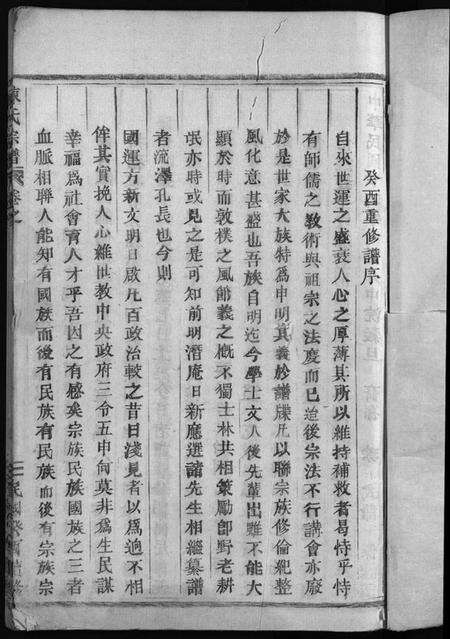 癸酉重修譜序
自來世運之盛衰人心之厚薄其所以維持補救者曷恃乎恃
有師儒之教術與祖宗之法度而已迨後宗法不行講會亦廢
於是世家大族特為申明其義於譜牒凡以聯宗族修倫紀整
風化意甚盛也吾族自明迄今學士文人後先輩出雖不能大
顯於時而敦樸之風節義之概不獨士林共相策勵即野老耕
氓亦時或見之是可知前明潛庵日新應選諸先生相繼纂譜
者流澤孔長也今則
國運方新文明日啟凡百政治較之昔日淺見者以為適不相
侔其實挽人心維世教中央政府三令五申何莫非為生民謀
幸福為社會育人才乎吾因之有感矣宗族民族國族之三者
血脈相聯人能知有國族而後有民族有民族而後有宗族宗
陳氏宗譜
卷之
民國癸酉重修